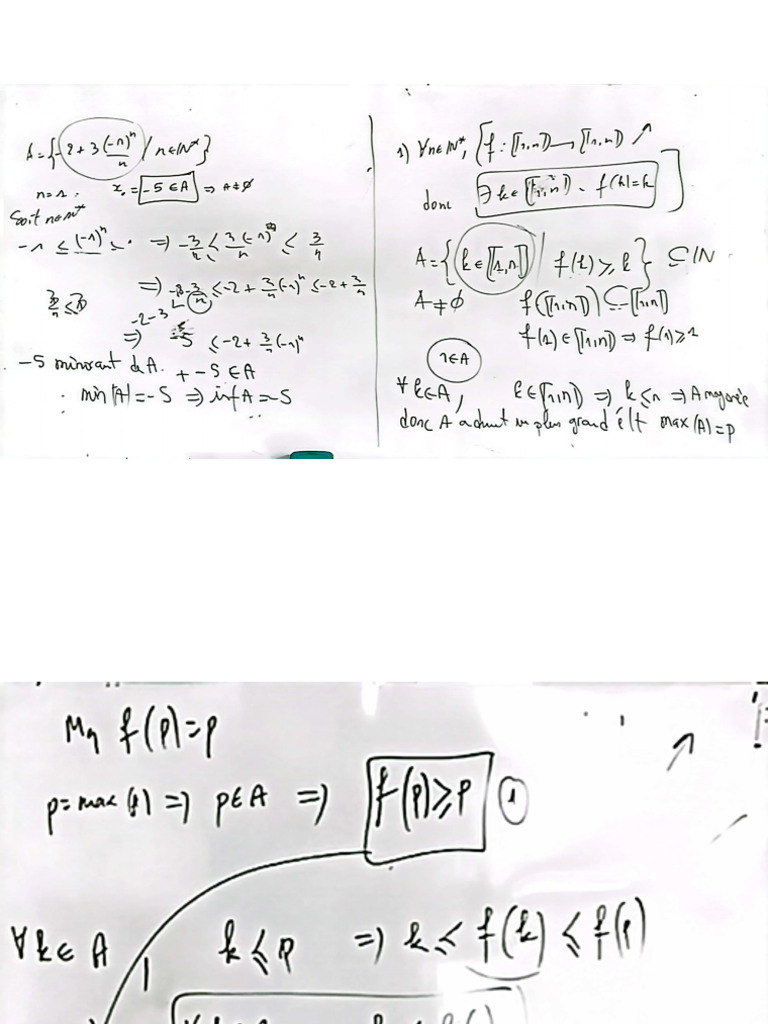 A = {-2 + 3(-1)^n/n / n ∈ ℕ*}
n = 1. x₁ = -5 ∈ A ⇒ A ≠ ∅
Soit n ∈ ℕ*
-1 ≤ (-1)^n ≤ 1 ⇒ -3/n ≤ 3(-1)^n/n ≤ 3/n
⇒ -2 - 3/n ≤ -2 + 3/n (-1)^n ≤ -2 + 3/n
3/n ≤ 3
-2-3
⇒ -5 ≤ -2 + 3/n (-1)^n
-5 minorant de A. + -5 ∈ A
min(A) = -5 ⇒ inf A = -5
1) ∀n ∈ ℕ*, {f : ⟦1,n⟧ → ⟦1,n⟧ ↗
donc ∃ k ∈ ⟦1,n⟧ . f(k) = k
A = {k ∈ ⟦1,n⟧ | f(k) ≥ k} ⊆ ℕ
A ≠ ∅ f(⟦1,n⟧) ⊆ ⟦1,n⟧
f(1) ∈ ⟦1,n⟧ ⇒ f(1) ≥ 1
1 ∈ A
∀ k ∈ A, k ∈ ⟦1,n⟧ ⇒ k ≤ n ⇒ A majorée
donc A admet un plus grand élt max(A) = p
Mq f(p) = p
p = max(A) ⇒ p ∈ A ⇒ f(p) ≥ p ①
∀ k ∈ A k ≤ p ⇒ k ≤ f(k) ≤ f(p)